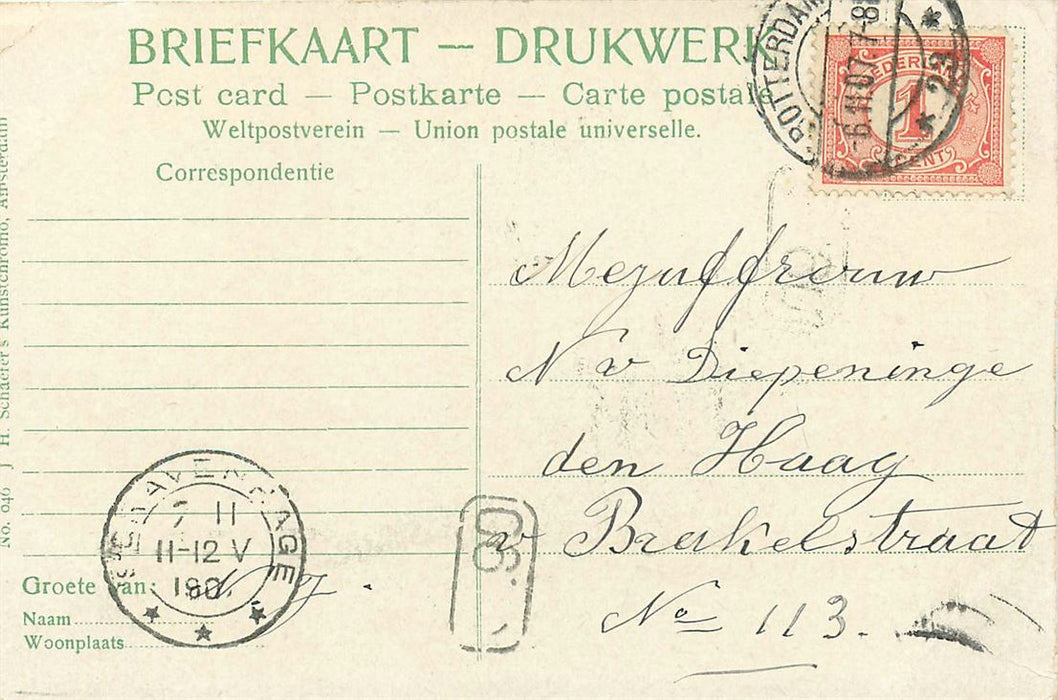 BRIEFKAART — DRUKWERK
Post card — Postkarte — Carte postale
Weltpostverein — Union postale universelle.
Correspondentie
ROTTERDAM
-6.11.07 7-8
* 29 *
NEDERLAND
1
CENT
Mejuffrouw
N v Diepeninge
den Haag
v Brakelstraat
No 113.
'S GRAVENHAGE
7 11
11-12 V
190
Groete van:
Naam
Woonplaats
No. 046 J. H. Schaefer's Kunstchromo, Amsterdam